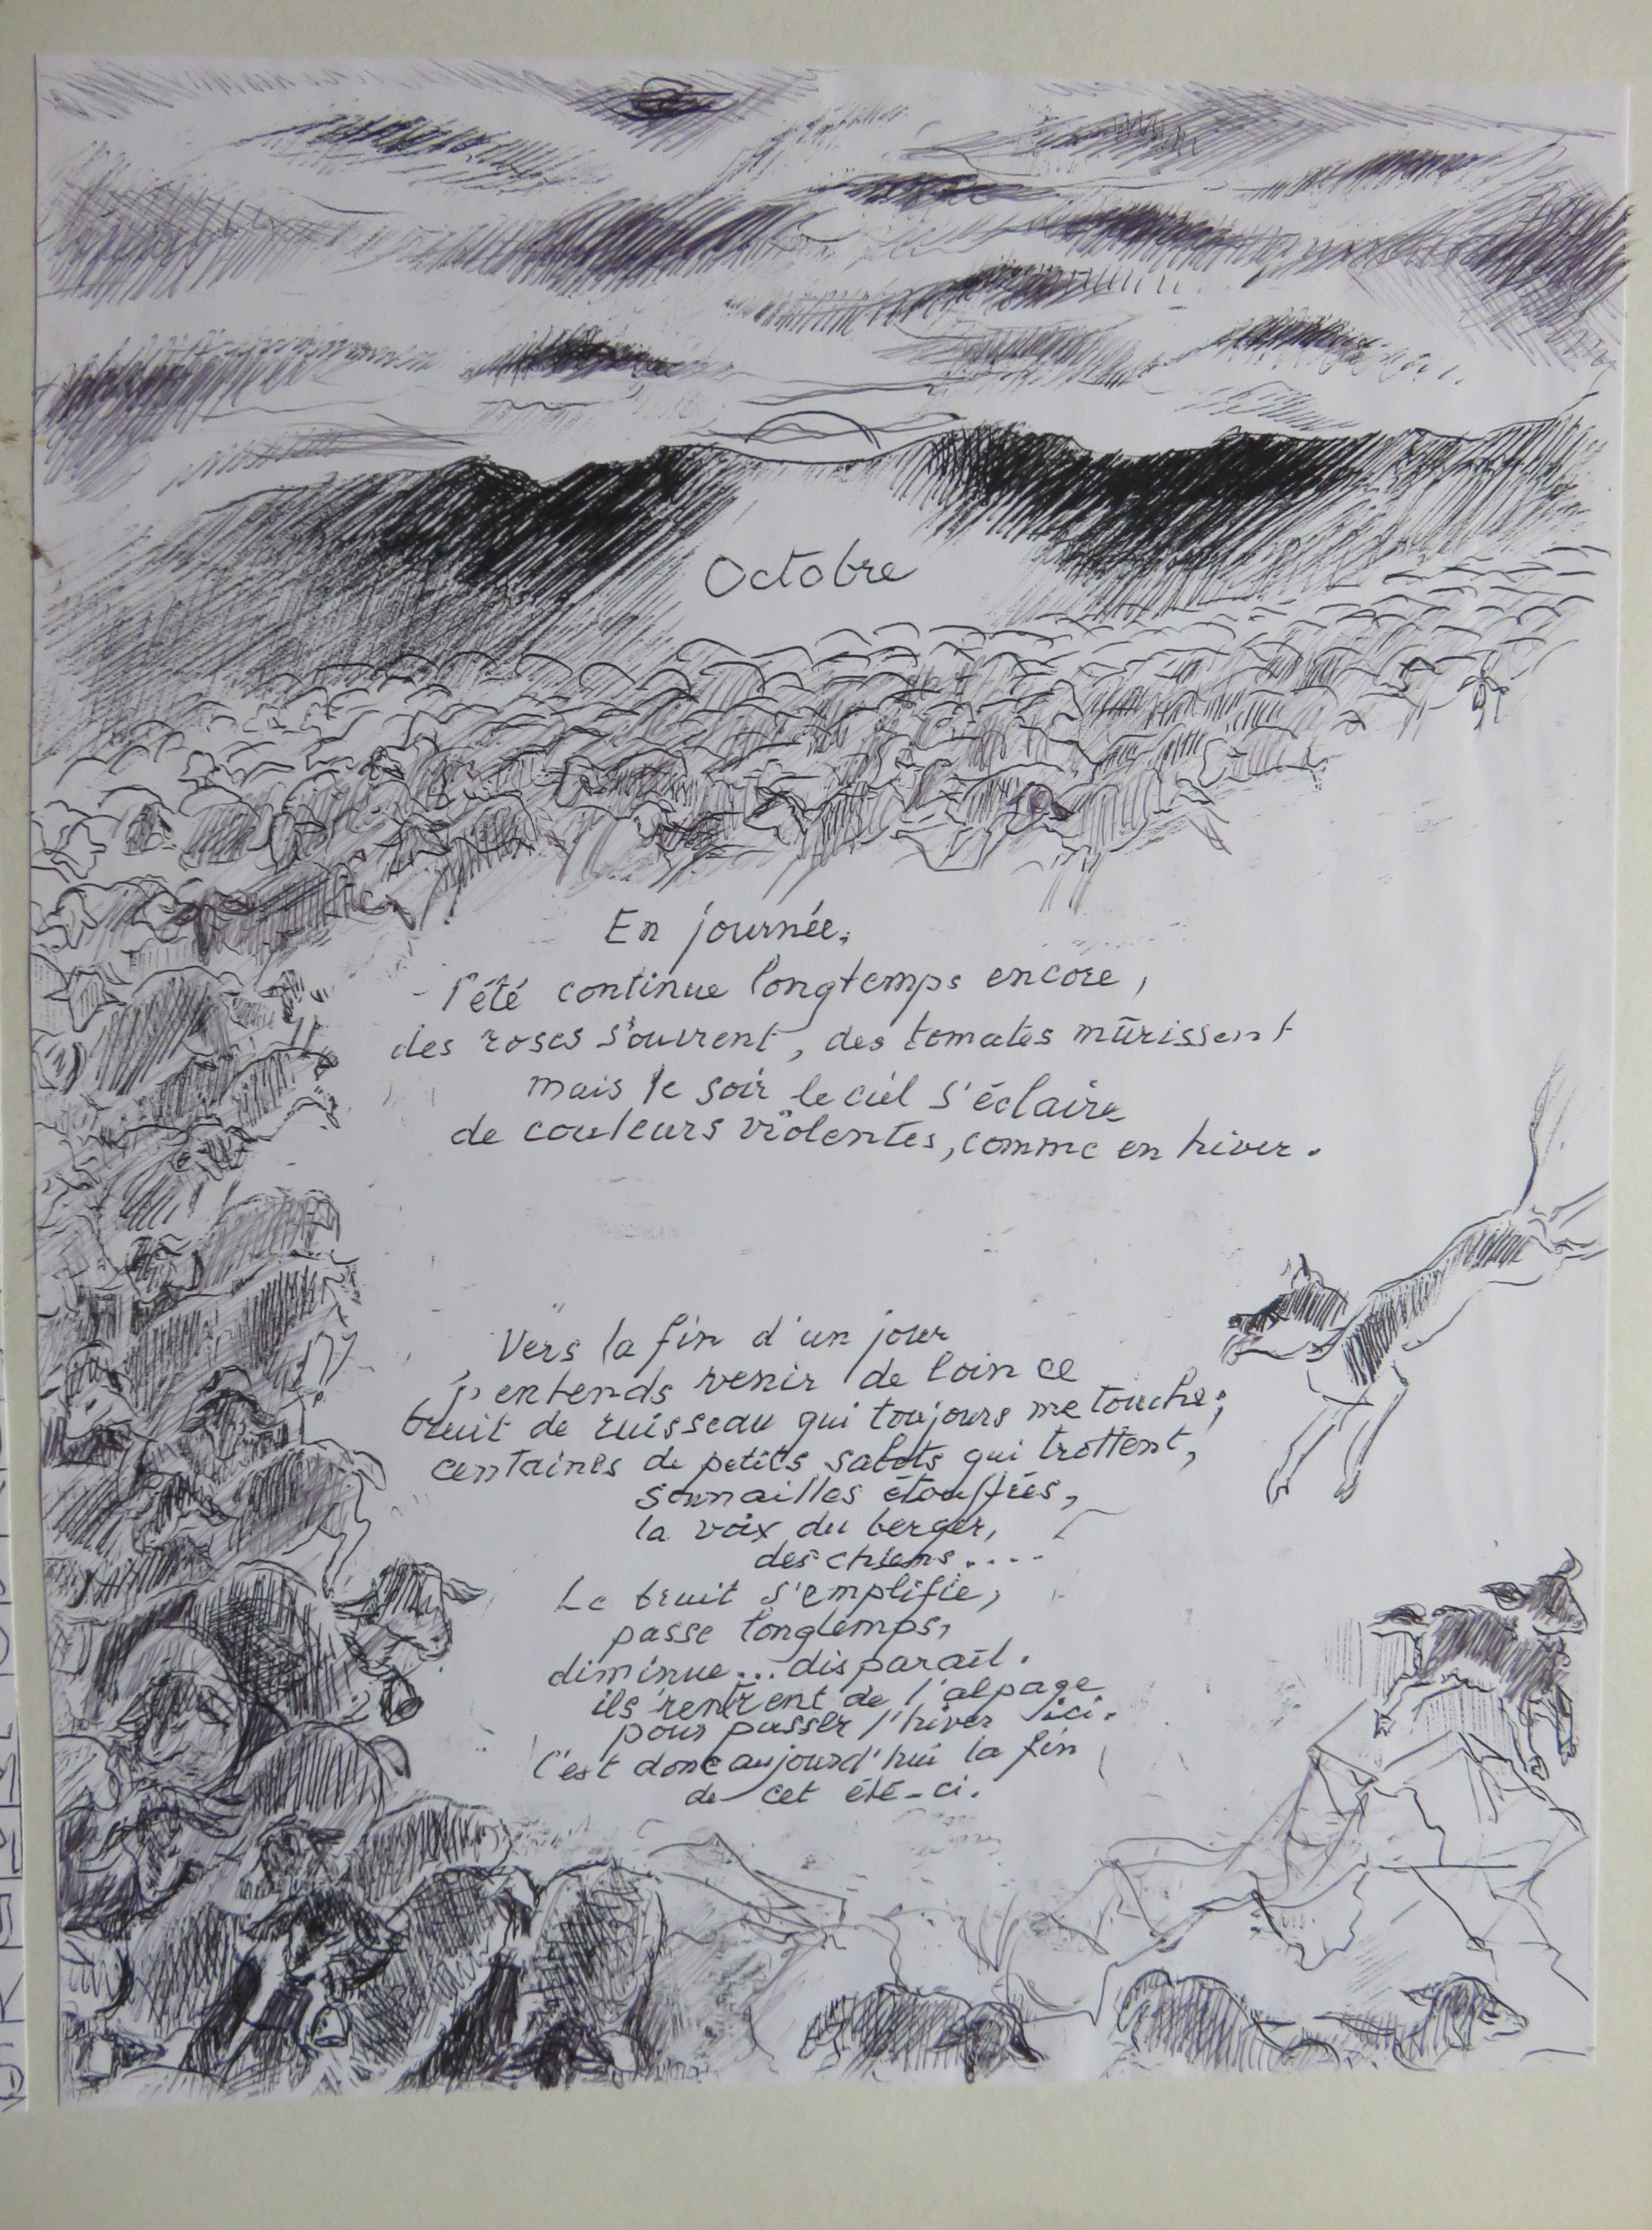 Octobre
En journée,
l'été continue longtemps encore,
des roses s'ouvrent, des tomates mûrissent
mais le soir le ciel s'éclaire
de couleurs violentes, comme en hiver.
Vers la fin d'un jour
j'entends venir de loin ce
bruit de ruisseau qui toujours me touche;
centaines de petits sabots qui trottent,
sonnailles étouffées,
la voix du berger,
des chiens....
Le bruit s'emplifie,
passe longtemps,
diminue... disparaît.
ils rentrent de l'alpage
pour passer l'hiver ici.
C'est donc aujourd'hui la fin
de cet été-ci.